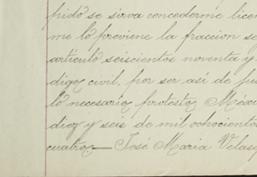 pido se sirva concederme licen
me lo previene la fraccion se
articulo seiscientos noventa y
digo civil, por ser así de
lo necesario protesto. Méxic
diez y seis de mil ochocientos
cuatro.— José Maria Velas